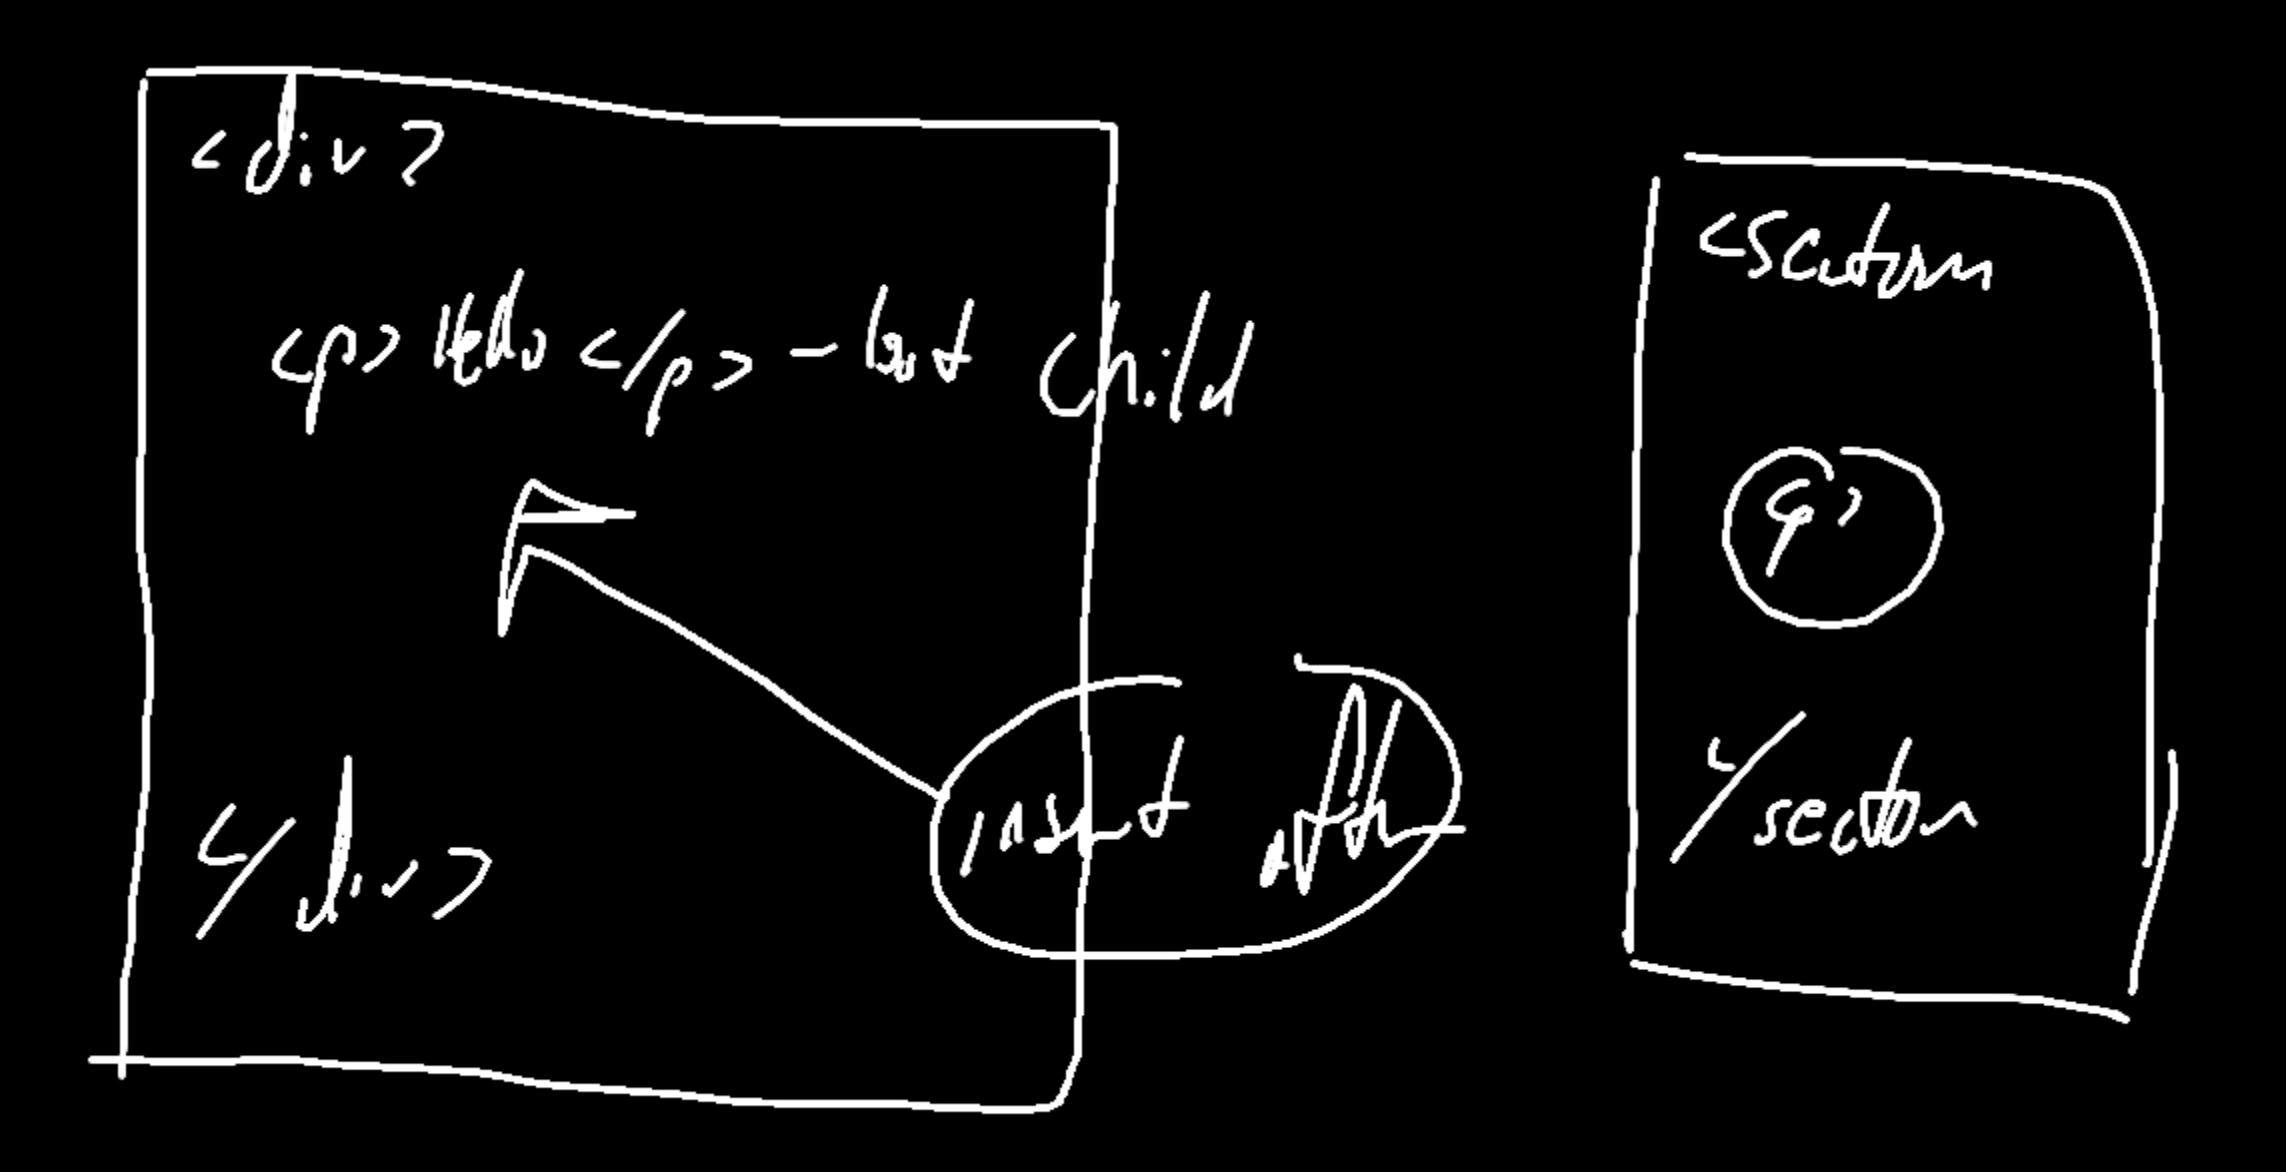 <div>
<p> Hello </p> - last child
</div>
insert after
<section
<p>
</section